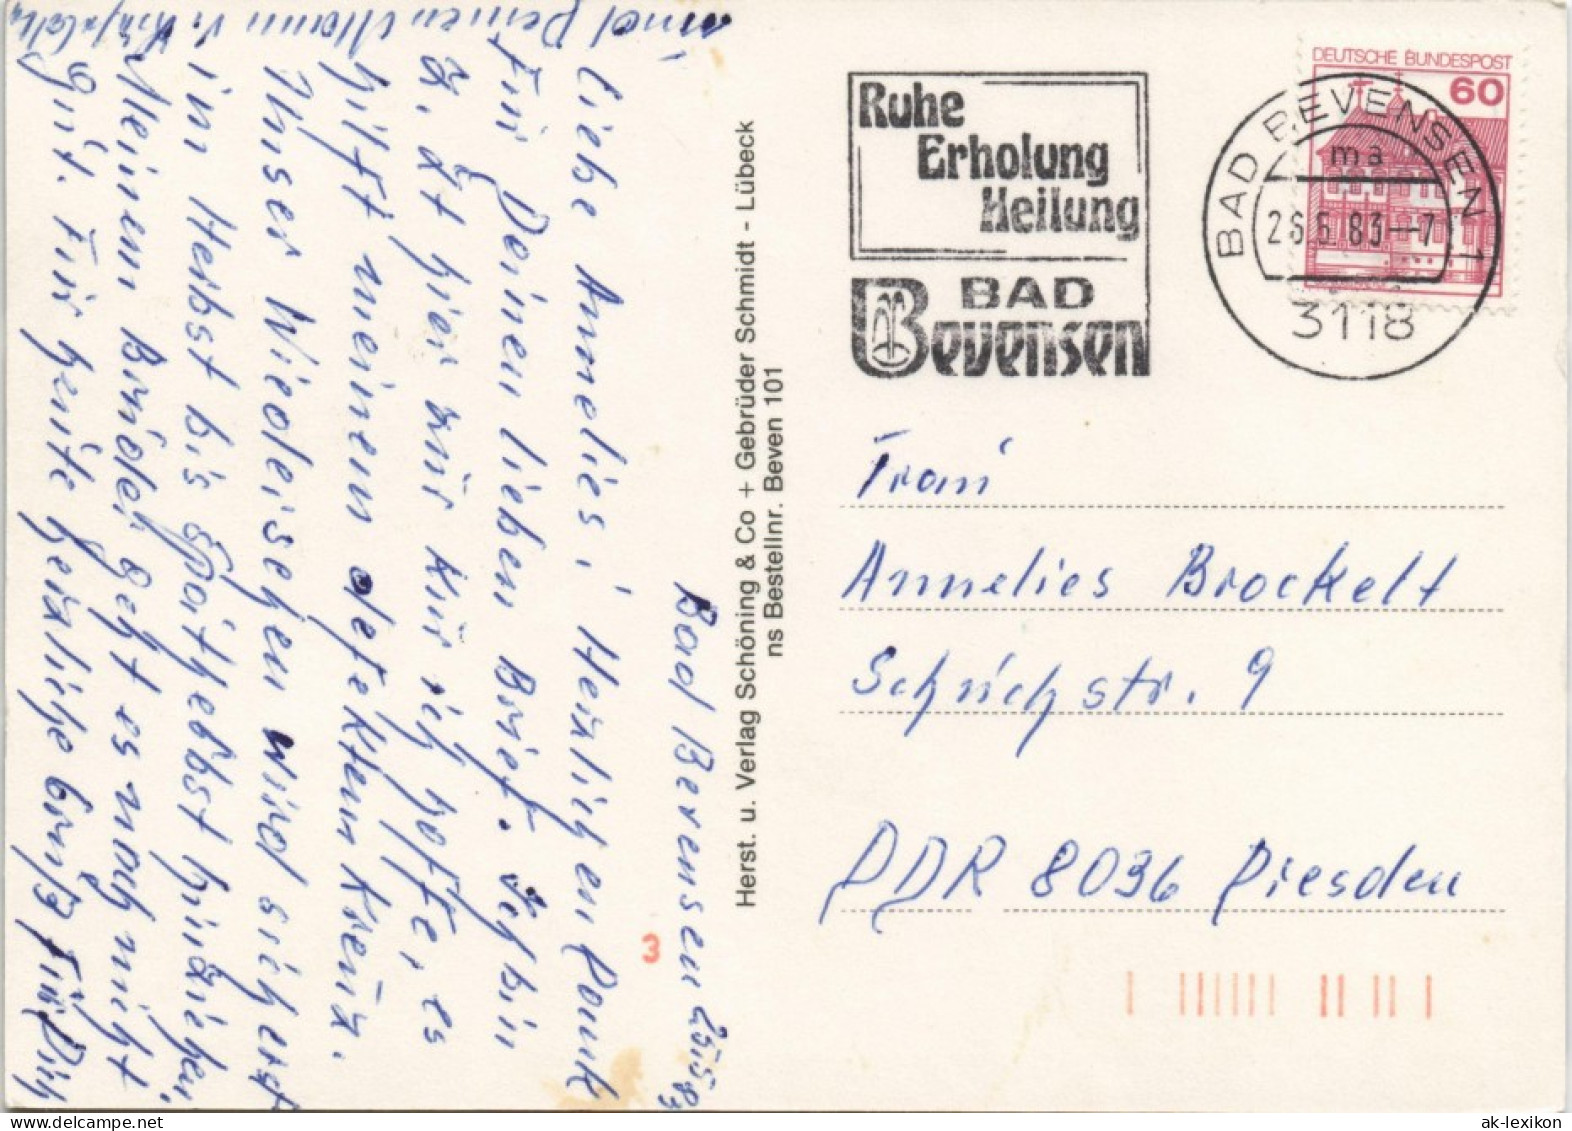 Bad Bevensen 25.5.83
Liebe Annelies, Herzlichen Dank
für Deinen lieben Brief. Ich bin
z. Zt hier zur Kur ich hoffe, es
hilft meinem defekten Kreuz.
Unser Wiedersehen wird sich erst
im Herbst bis Spätherbst hinziehen.
Meinem Bruder geht es noch nicht
gut. Für heute herzliche Grüße für Dich
und Deinen Mann v.
Herst. u. Verlag Schöning & Co + Gebrüder Schmidt - Lübeck
ns Bestellnr. Beven 101
Ruhe
Erholung
Heilung
BAD
Bevensen
DEUTSCHE BUNDESPOST
60
BAD BEVENSEN 1
ma
26.5.83--7
3118
Frau
Annelies Brockelt
Schüchstr. 9
DDR 8036 Dresden
3
ak-lexikon.com